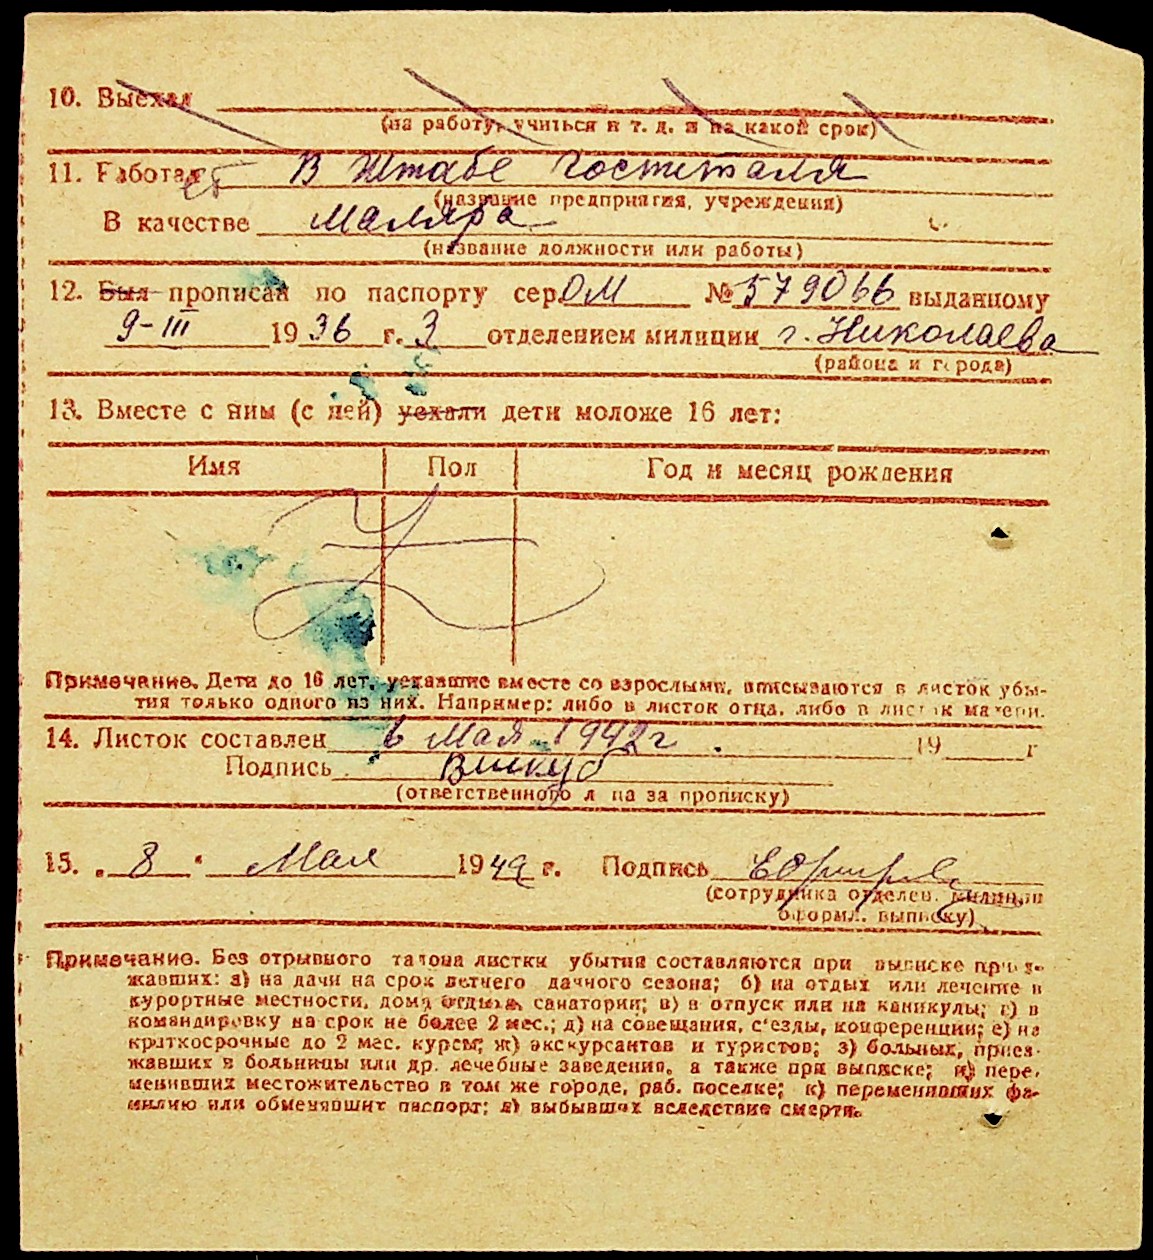 10. Выехал
(на работу, учиться и т. д. и на какой срок)
11. Работает В Штабе госпиталя
(название предприятия, учреждения)
В качестве Маляра
(название должности или работы)
12. Был прописан по паспорту сер. ОМ № 579066 выданному
9-III 1936 г. 3 отделением милиции г. Николаева
(района и города)
13. Вместе с ним (с ней) уехали дети моложе 16 лет:
Имя Пол Год и месяц рождения
Z
Примечание. Дети до 16 лет, уехавшие вместе со взрослыми, вписываются в листок убы-
тия только одного из них. Например: либо в листок отца, либо в листок матери.
14. Листок составлен 6 Мая 1942 г. 19 г
Подпись
(ответственного лица за прописку)
15. „ 8 " Мая 1942 г. Подпись
(сотрудника отделен. милиции
оформл. выписку)
Примечание. Без отрывного талона листки убытия составляются при выписке приез-
жавших: а) на дачи на срок летнего дачного сезона; б) на отдых или лечение в
курортные местности, дома отдыха, санатории; в) в отпуск или на каникулы; г) в
командировку на срок не более 2 мес.; д) на совещания, с'езды, конференции; е) на
краткосрочные до 2 мес. курсы; ж) экскурсантов и туристов; з) больных, приез-
жавших в больницы или др. лечебные заведения, а также при выписке; и) пере-
менивших местожительство в том же городе, раб. поселке; к) переменивших фа-
милию или обменявших паспорт; л) выбывших вследствие смерти.